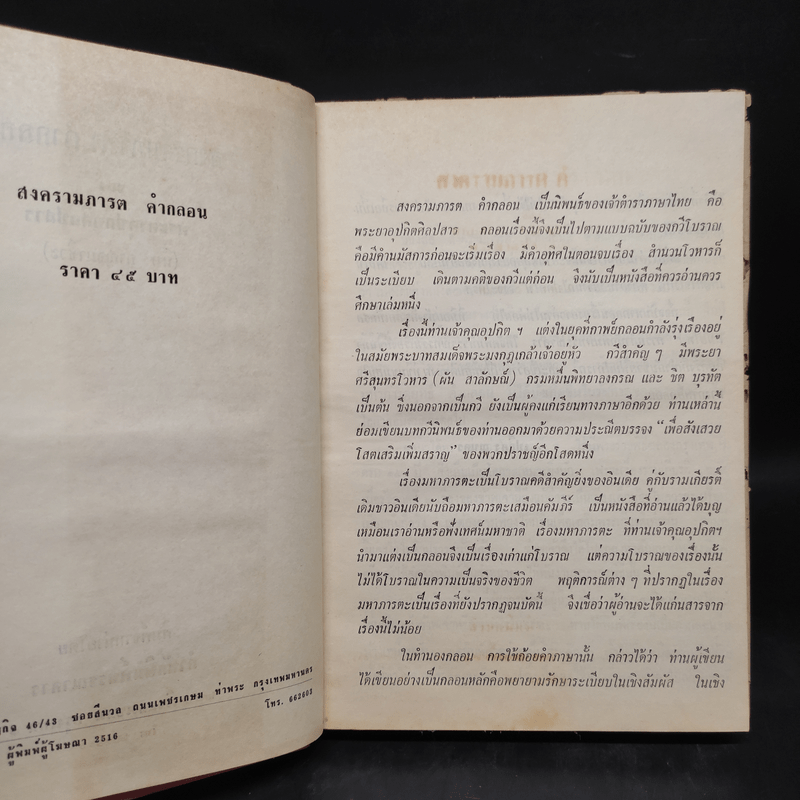 สงครามภารต คำกลอน
ราคา ๔๕ บาท
46/43 ซอยสีนวล ถนนเพชรเกษม ท่าพระ กรุงเทพมหานคร
โทร. 662603
ผู้พิมพ์ผู้โฆษณา 2516
สงครามภารต คำกลอน เป็นนิพนธ์ของเจ้าตำราภาษาไทย คือ
พระยาอุปกิตศิลปสาร กลอนเรื่องนี้จึงเป็นไปตามแบบฉบับของกวีโบราณ
คือมีคำนมัสการก่อนจะเริ่มเรื่อง มีคำอุทิศในตอนจบเรื่อง สำนวนโวหารก็
เป็นระเบียบ เดินตามคติของกวีแต่ก่อน จึงนับเป็นหนังสือที่ควรอ่านควร
ศึกษาเล่มหนึ่ง
เรื่องนี้ท่านเจ้าคุณอุปกิต ฯ แต่งในยุคที่กาพย์กลอนกำลังรุ่งเรืองอยู่
ในสมัยพระบาทสมเด็จพระมงกุฎเกล้าเจ้าอยู่หัว กวีสำคัญ ๆ มีพระยา
ศรีสุนทรโวหาร (ผัน สาลักษณ์) กรมหมื่นพิทยาลงกรณ และ ชิต บุรทัต
เป็นต้น ซึ่งนอกจากเป็นกวี ยังเป็นผู้คงแก่เรียนทางภาษาอีกด้วย ท่านเหล่านี้
ย่อมเขียนบทกวีนิพนธ์ของท่านออกมาด้วยความประณีตบรรจง “เพื่อสังเสวย
โสตเสริมเพิ่มสราญ” ของพวกปราชญ์อีกโสดหนึ่ง
เรื่องมหาภารตะเป็นโบราณคดีสำคัญยิ่งของอินเดีย คู่กับรามเกียรติ์
เดิมชาวอินเดียนับถือมหาภารตะเสมือนคัมภีร์ เป็นหนังสือที่อ่านแล้วได้บุญ
เหมือนเราอ่านหรือฟังเทศน์มหาชาติ เรื่องมหาภารตะ ที่ท่านเจ้าคุณอุปกิตฯ
นำมาแต่งเป็นกลอนจึงเป็นเรื่องเก่าแก่โบราณ แต่ความโบราณของเรื่องนั้น
ไม่ได้โบราณในความเป็นจริงของชีวิต พฤติการณ์ต่าง ๆ ที่ปรากฏในเรื่อง
มหาภารตะเป็นเรื่องที่ยังปรากฏจนบัดนี้ จึงเชื่อว่าผู้อ่านจะได้แก่นสารจาก
เรื่องนี้ไม่น้อย
ในทำนองกลอน การใช้ถ้อยคำภาษานั้น กล่าวได้ว่า ท่านผู้เขียน
ได้เขียนอย่างเป็นกลอนหลักคือพยายามรักษาระเบียบในเชิงสัมผัส ในเชิง